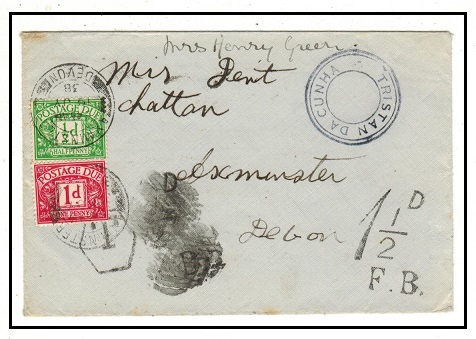 Mrs Henry Green
Miss Dent
Chattan
Axminster
Devon
TRISTAN DA CUNHA
DEVON
38
POSTAGE DUE
½d
HALFPENNY
POSTAGE DUE
1d
ONE PENNY
T
D
1½ D
F.B.